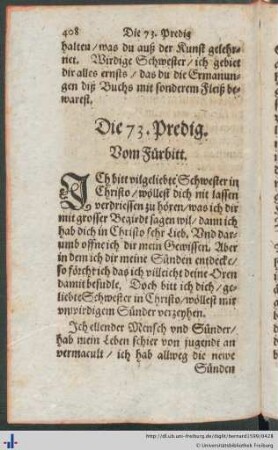 408 Die 73. Predig
halten/was du auß der Kunst gelehr-
net. Wirdige Schwester/ich gebiet
dir alles ernsts/das du die Ermanun-
gen diß Buchs mit sonderem Fleiß be-
warest.
Die 73. Predig.
Vom Fürbitt.
JCh bitt vilgeliebte Schwester in
Christo/wöllest dich nit lassen
verdriessen zu hören/was ich dir
mit grosser Begirdt sagen wil/dann ich
hab dich in Christo sehr Lieb. Vnd dar-
umb offne ich dir mein Gewissen. Aber
in dem ich dir meine Sünden entdecke/
so förcht ich das ich villeicht deine Oren
damit besudle. Doch bitt ich dich/ge-
liebte Schwester in Christo/wöllest mir
vnwirdigem Sünder verzeyhen.
Jch ellender Mensch vnd Sünder/
hab mein Leben schier von jugendt an
vermacult/ich hab allweg die newe
Sünden
http://dl.ub.uni-freiburg.de/diglit/bernard1599/0428
© Universitätsbibliothek Freiburg